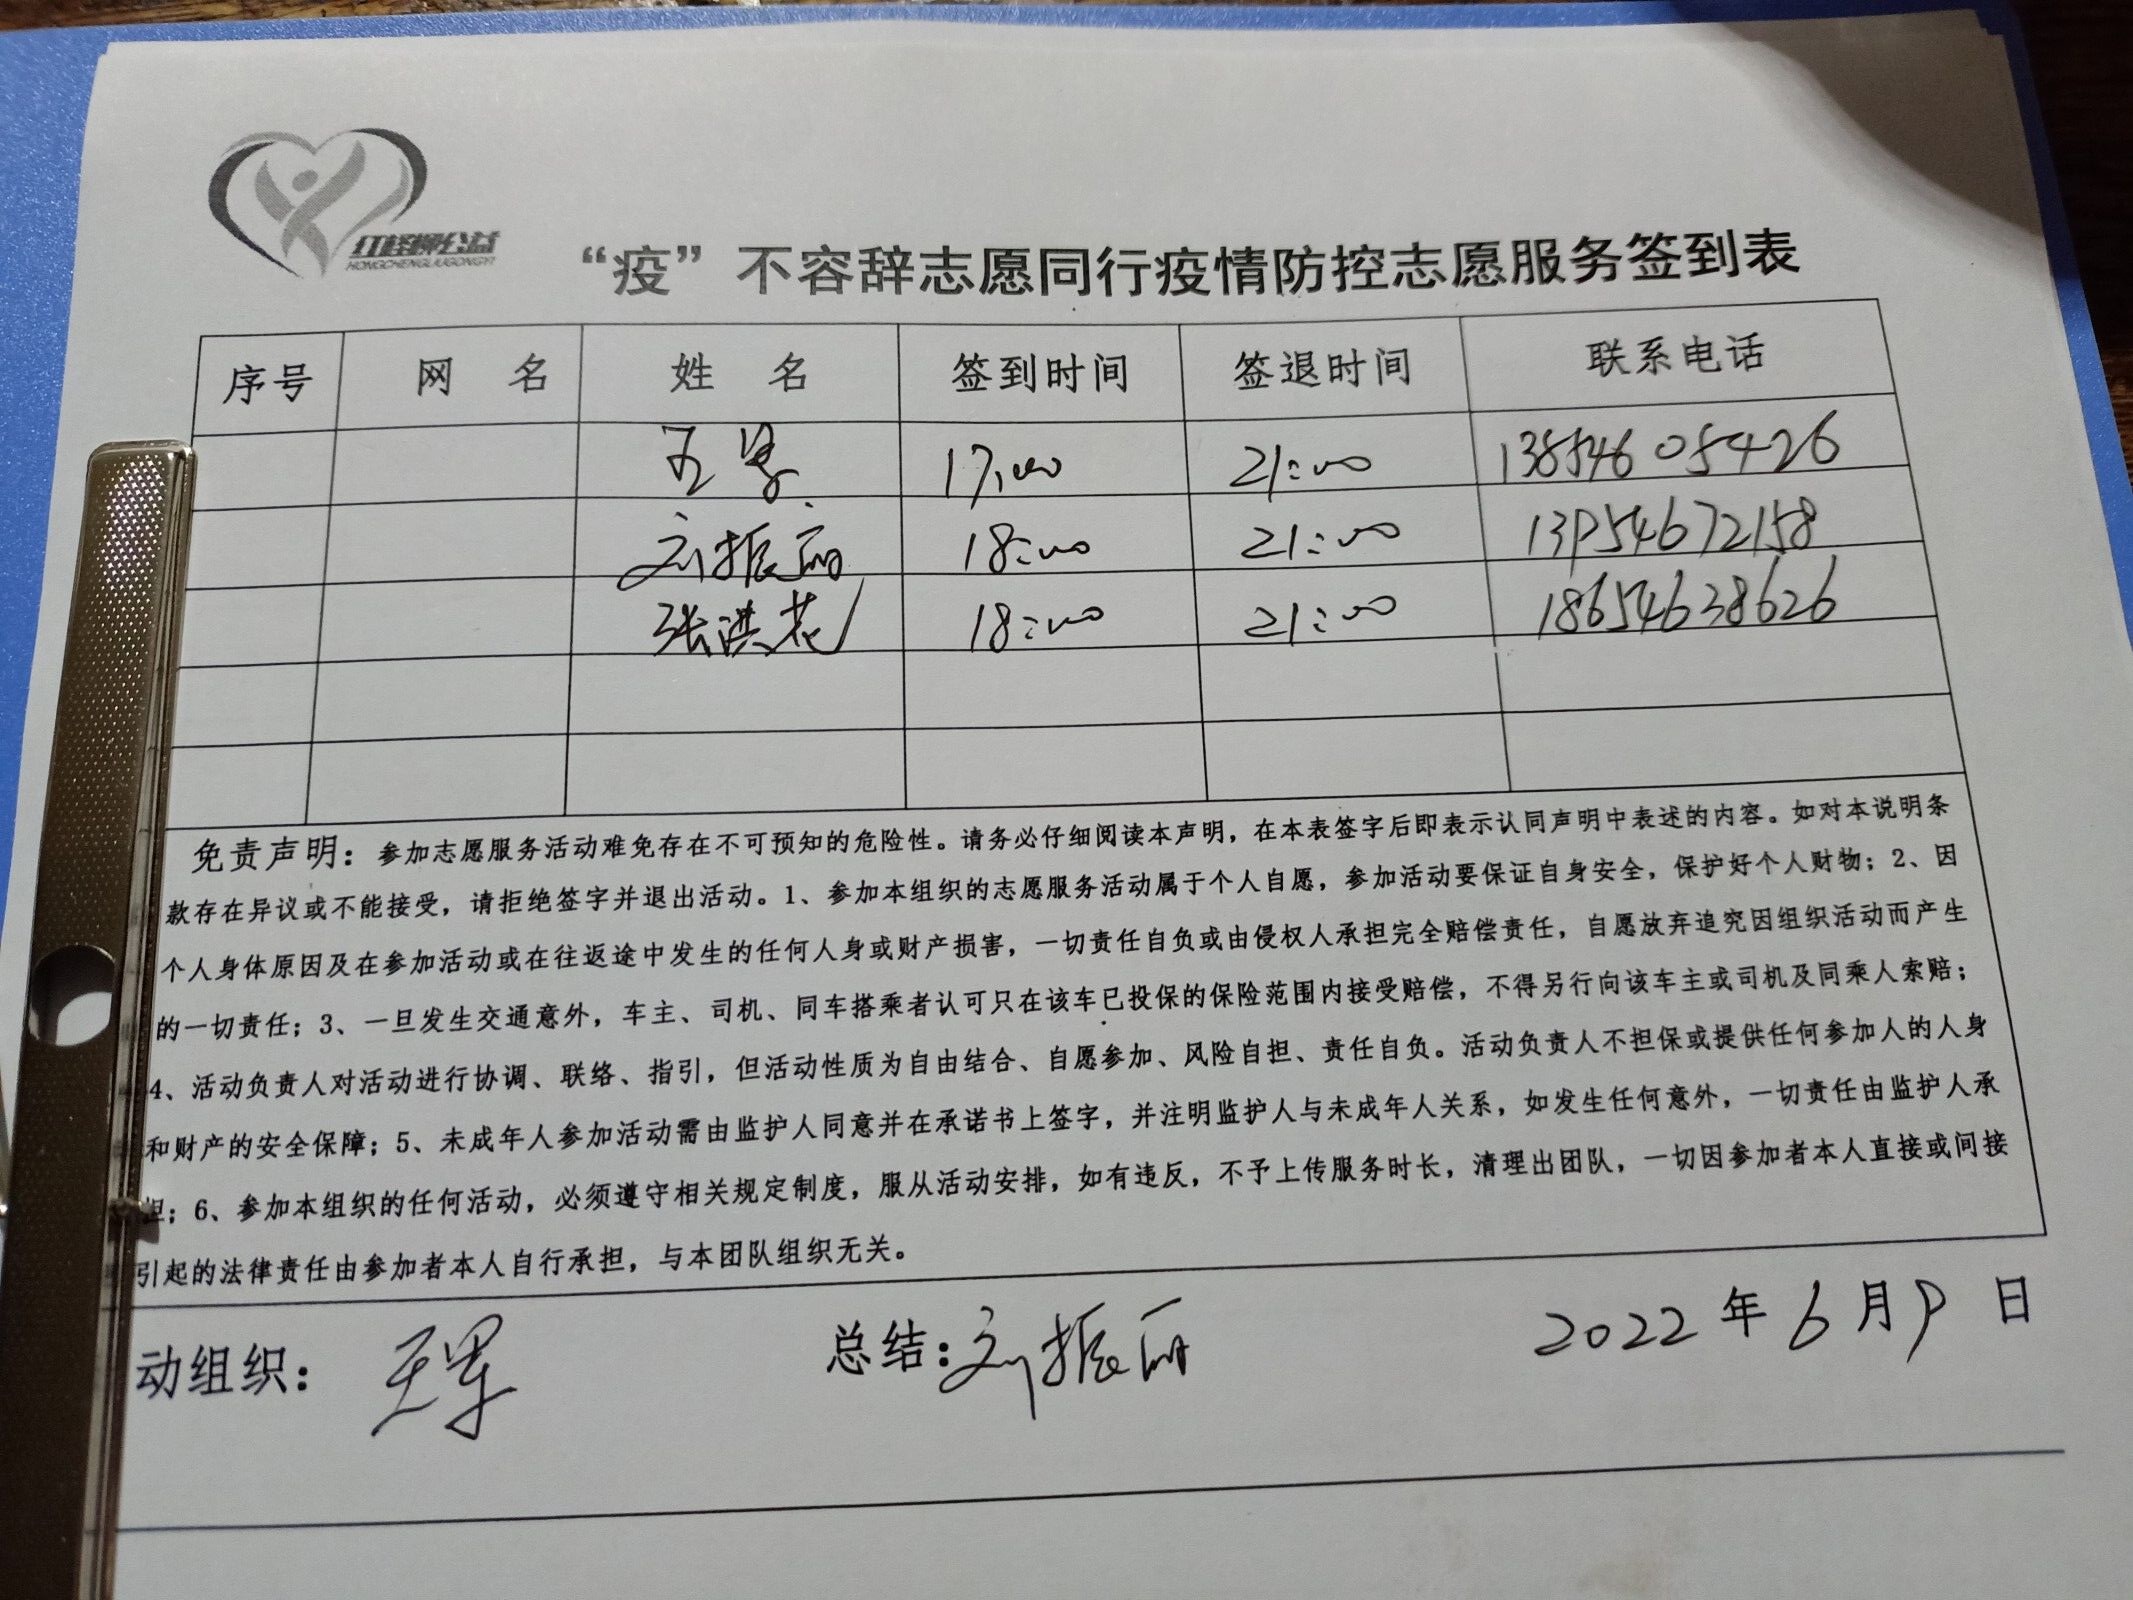 红柽柳公益
HONGCHENGLIUGONGYI
“疫”不容辞志愿同行疫情防控志愿服务签到表
序号 网 名 姓 名 签到时间 签退时间 联系电话
17:00 21:00
刘振丽 18:00 21:00 13954672158
张洪花 18:00 21:00 18654638626
免责声明：参加志愿服务活动难免存在不可预知的危险性。请务必仔细阅读本声明，在本表签字后即表示认同声明中表述的内容。如对本说明条
款存在异议或不能接受，请拒绝签字并退出活动。1、参加本组织的志愿服务活动属于个人自愿，参加活动要保证自身安全，保护好个人财物；2、因
个人身体原因及在参加活动或在往返途中发生的任何人身或财产损害，一切责任自负或由侵权人承担完全赔偿责任，自愿放弃追究因组织活动而产生
的一切责任；3、一旦发生交通意外，车主、司机、同车搭乘者认可只在该车已投保的保险范围内接受赔偿，不得另行向该车主或司机及同乘人索赔；
4、活动负责人对活动进行协调、联络、指引，但活动性质为自由结合、自愿参加、风险自担、责任自负。活动负责人不担保或提供任何参加人的人身
和财产的安全保障；5、未成年人参加活动需由监护人同意并在承诺书上签字，并注明监护人与未成年人关系，如发生任何意外，一切责任由监护人承
担；6、参加本组织的任何活动，必须遵守相关规定制度，服从活动安排，如有违反，不予上传服务时长，清理出团队，一切因参加者本人直接或间接
引起的法律责任由参加者本人自行承担，与本团队组织无关。
动组织： 总结：刘振丽 2022年6月9日